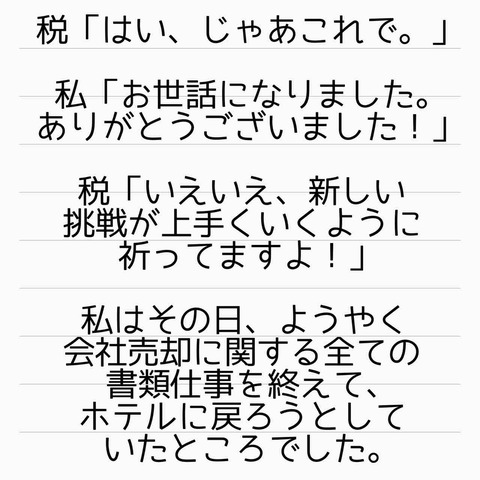 税「はい、じゃあこれで。」
私「お世話になりました。
ありがとうございました！」
税「いえいえ、新しい
挑戦が上手くいくように
祈ってますよ！」
私はその日、ようやく
会社売却に関する全ての
書類仕事を終えて、
ホテルに戻ろうとして
いたところでした。